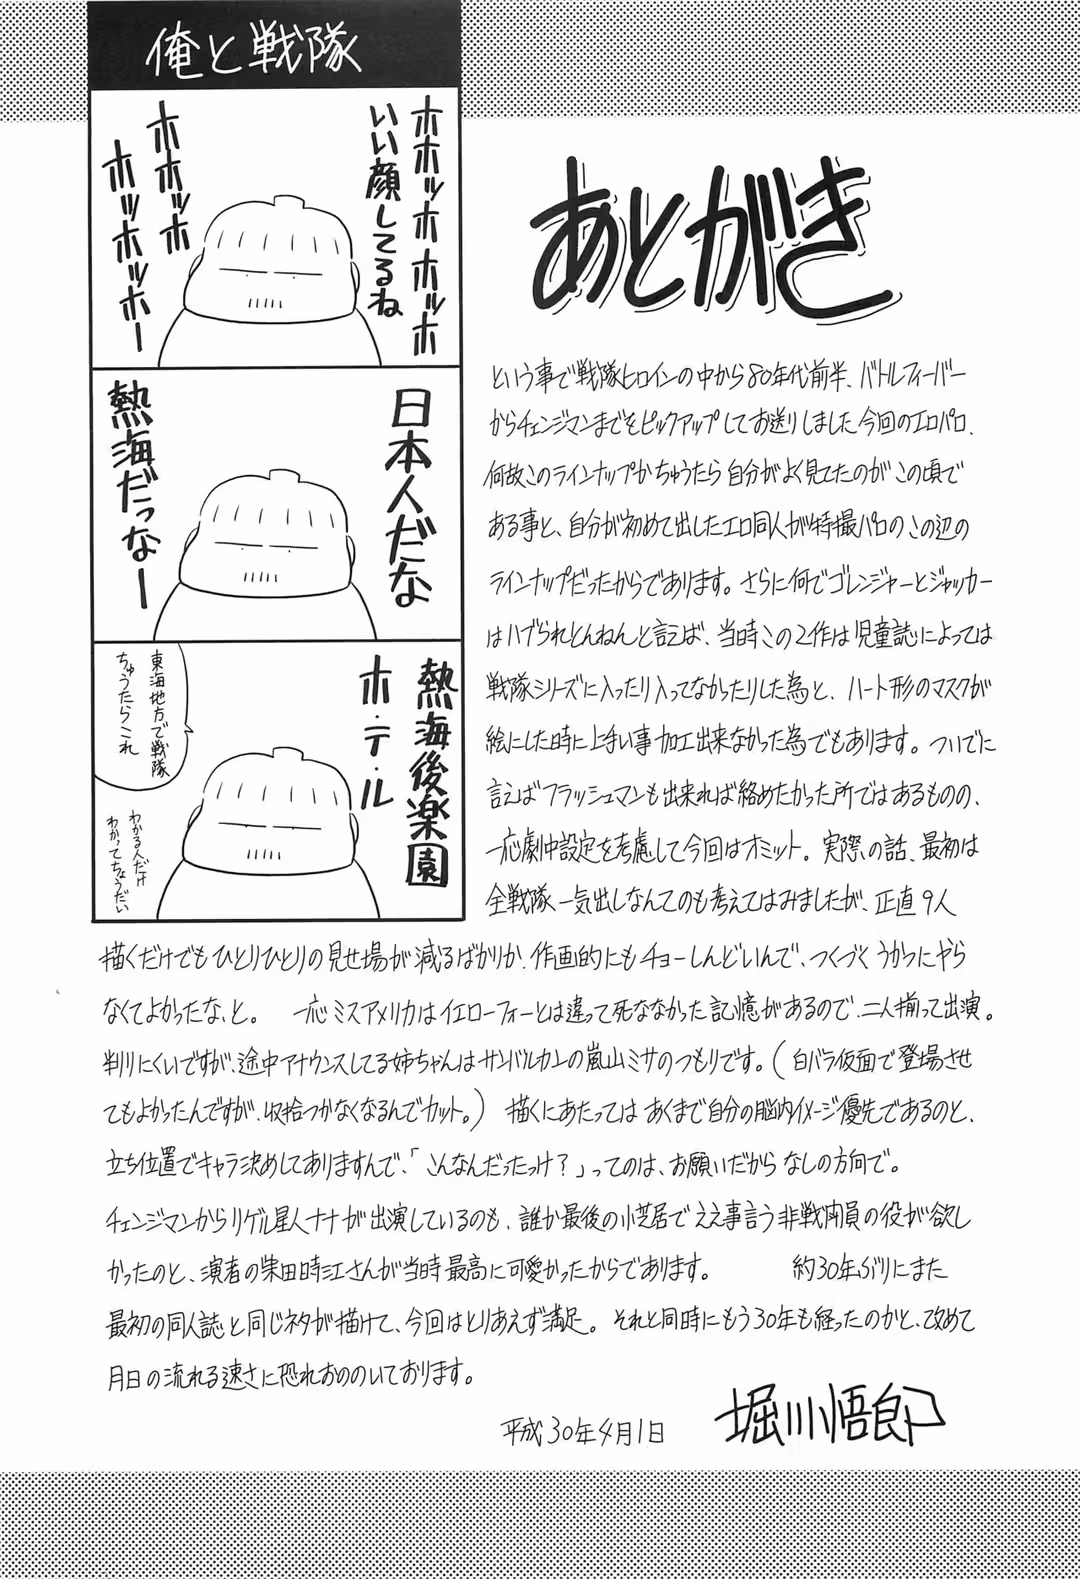 俺と戦隊
ホホッホホッホ
いい顔してるね
ホホッホ
ホッホッホー
日本人だな
熱海だっなー
熱海後楽園
ホ・テ・ル
東海地方で戦隊
ちゅうたらこれ
わかる人だけ
わかってちょうだい
あとがき
という事で戦隊ヒロインの中から80年代前半、バトルフィーバー
からチェンジマンまでをピックアップしてお送りしました今回のエロパロ、
何故このラインナップかちゅうたら自分がよく見てたのがこの頃で
ある事と、自分が初めて出したエロ同人が特撮パロのこの辺の
ラインナップだったからであります。さらに何でゴレンジャーとジャッカー
はハブられとんねんと言えば、当時この2作は児童誌によっては
戦隊シリーズに入ったり入ってなかったりした為と、ハート形のマスクが
絵にした時に上手い事加工出来なかった為でもあります。ついでに
言えばフラッシュマンも出来れば絡めたかった所ではあるものの、
一応劇中設定を考慮して今回はオミット。実際の話、最初は
全戦隊一気出しなんてのも考えてはみましたが、正直9人
描くだけでもひとりひとりの見せ場が減るばかりか、作画的にもチョーしんどいんで、つくづくうかつにやら
なくてよかったな、と。 一応ミスアメリカはイエローフォーとは違って死ななかった記憶があるので、二人揃って出演。
判りにくいですが、途中アナウンスしてる姉ちゃんはサンバルカンの嵐山ミサのつもりです。(白バラ仮面で登場させ
てもよかったんですが、収拾つかなくなるんでカット。) 描くにあたってはあくまで自分の脳内イメージ優先であるのと、
立ち位置でキャラ決めしてありますんで、「こんなんだったっけ?」ってのは、お願いだからなしの方向で。
チェンジマンからリゲル星人ナナが出演しているのも、誰か最後の小芝居でええ事言う非戦闘員の役が欲し
かったのと、演者の柴田時江さんが当時最高に可愛かったからであります。 約30年ぶりにまた
最初の同人誌と同じネタが描けて、今回はとりあえず満足。それと同時にもう30年も経ったのかと、改めて
月日の流れる速さに恐れおののいております。
平成30年4月1日
堀川悟郎